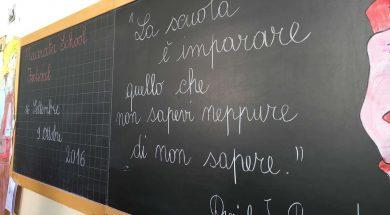 Macerata School
Festival
Settembre
9 Ottobre
2016
"La scuola
è imparare
quello che
non sapevi neppure
di non sapere."